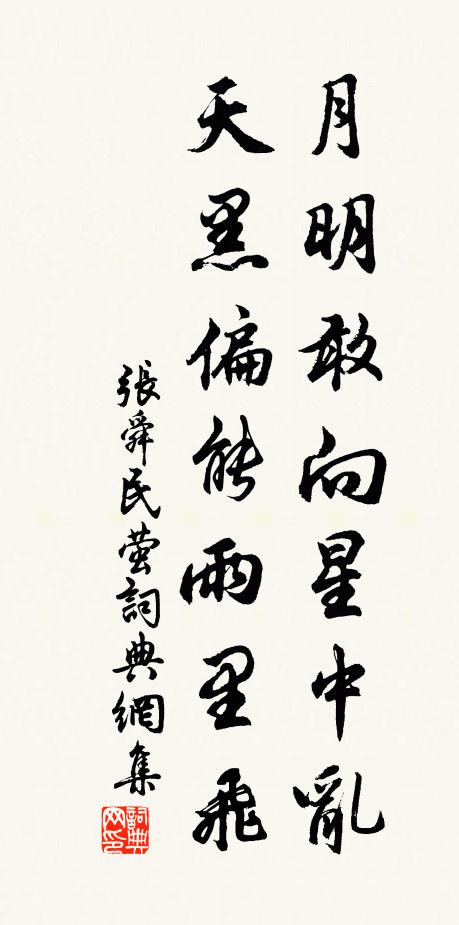 月明敢向星中亂
天黑偏能雨里飛
張舜民萤詞典網集
詞典网印